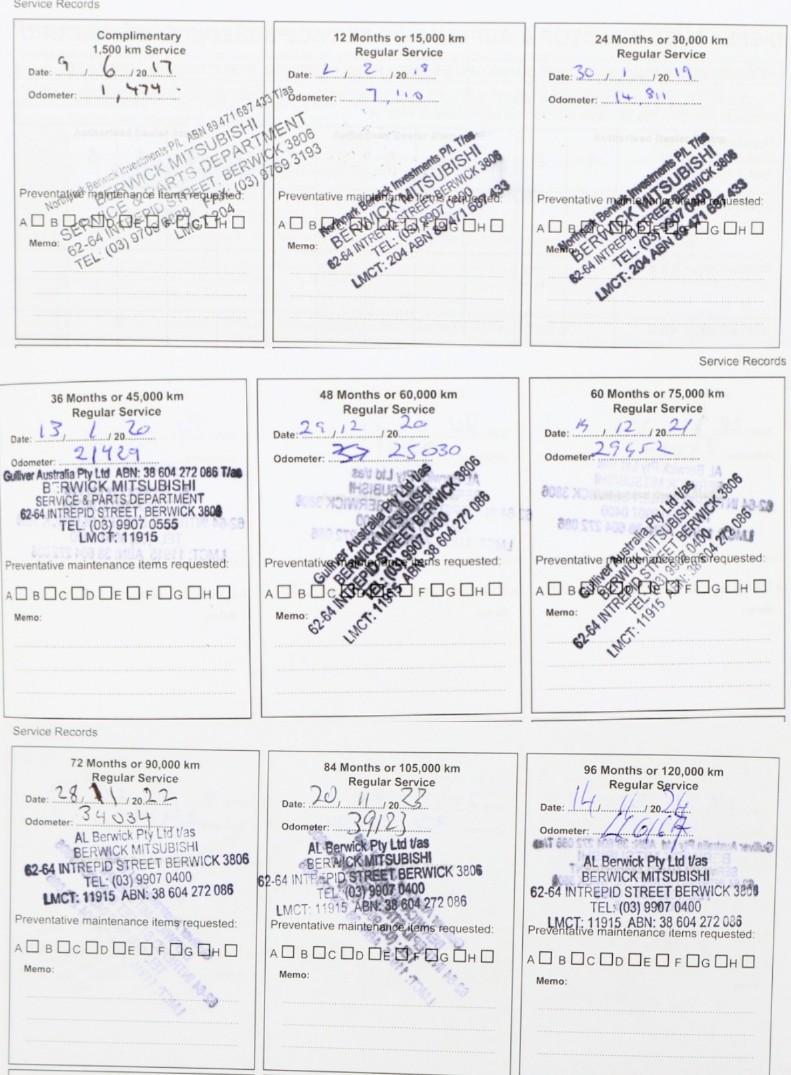 Service Records
Complimentary
1,500 km Service
Date: 9 / 6 / 20 17
Odometer: 1,474
Northpark Berwick Investments P/L ABN 89 471 687 433 T/as
BERWICK MITSUBISHI
SERVICE & PARTS DEPARTMENT
62-64 INTREPID STREET, BERWICK 3806
TEL: (03) (03) 9769 3193
LMCT 204
Preventative maintenance items requested:
A B C D E F G H
Memo:
12 Months or 15,000 km
Regular Service
Date: 2 / 2 / 20 18
Odometer: 7,110
Northpark Berwick Investments P/L T/as
BERWICK MITSUBISHI
62-64 INTREPID STREET BERWICK 3806
TEL: (03) 9907 0400
LMCT: 204 ABN 89 471 687 433
Preventative maintenance items requested:
A B C D E F G H
Memo:
24 Months or 30,000 km
Regular Service
Date: 30 / 1 / 20 19
Odometer: 14,811
Northpark Berwick Investments P/L T/as
BERWICK MITSUBISHI
62-64 INTREPID STREET BERWICK 3806
TEL: (03) 9907 0400
LMCT: 204 ABN 89 471 687 433
Preventative maintenance items requested:
A B C D E F G H
Memo:
Service Records
36 Months or 45,000 km
Regular Service
Date: 13 / 1 / 20 20
Odometer: 21429
Gulliver Australia Pty Ltd ABN: 38 604 272 086 T/as
BERWICK MITSUBISHI
SERVICE & PARTS DEPARTMENT
62-64 INTREPID STREET, BERWICK 3806
TEL: (03) 9907 0555
LMCT: 11915
Preventative maintenance items requested:
A B C D E F G H
Memo:
48 Months or 60,000 km
Regular Service
Date: 29 / 12 / 20 20
Odometer: 25030
Gulliver Australia Pty Ltd T/as
BERWICK MITSUBISHI
62-64 INTREPID STREET BERWICK 3806
TEL: (03) 9907 0400
LMCT: 11915 ABN: 38 604 272 086
Preventative maintenance items requested:
A B C D E F G H
Memo:
60 Months or 75,000 km
Regular Service
Date: / 12 / 20 21
Odometer: 29452
Gulliver Australia Pty Ltd T/as
BERWICK MITSUBISHI
62-64 INTREPID STREET BERWICK 3806
TEL: (03) 9907 0400
LMCT: 11915 ABN: 38 604 272 086
Preventative maintenance items requested:
A B C D E F G H
Memo:
Service Records
72 Months or 90,000 km
Regular Service
Date: 28 / 11 / 20 22
Odometer: 34034
AL Berwick Pty Ltd t/as
BERWICK MITSUBISHI
62-64 INTREPID STREET BERWICK 3806
TEL: (03) 9907 0400
LMCT: 11915 ABN: 38 604 272 086
Preventative maintenance items requested:
A B C D E F G H
Memo:
84 Months or 105,000 km
Regular Service
Date: 20 / 11 / 20 23
Odometer: 39123
AL Berwick Pty Ltd t/as
BERWICK MITSUBISHI
62-64 INTREPID STREET BERWICK 3806
TEL: (03) 9907 0400
LMCT: 11915 ABN: 38 604 272 086
Preventative maintenance items requested:
A B C D E F G H
Memo:
96 Months or 120,000 km
Regular Service
Date: 14 / 11 / 20 24
Odometer:
AL Berwick Pty Ltd t/as
BERWICK MITSUBISHI
62-64 INTREPID STREET BERWICK 3806
TEL: (03) 9907 0400
LMCT: 11915 ABN: 38 604 272 086
Preventative maintenance items requested:
A B C D E F G H
Memo: